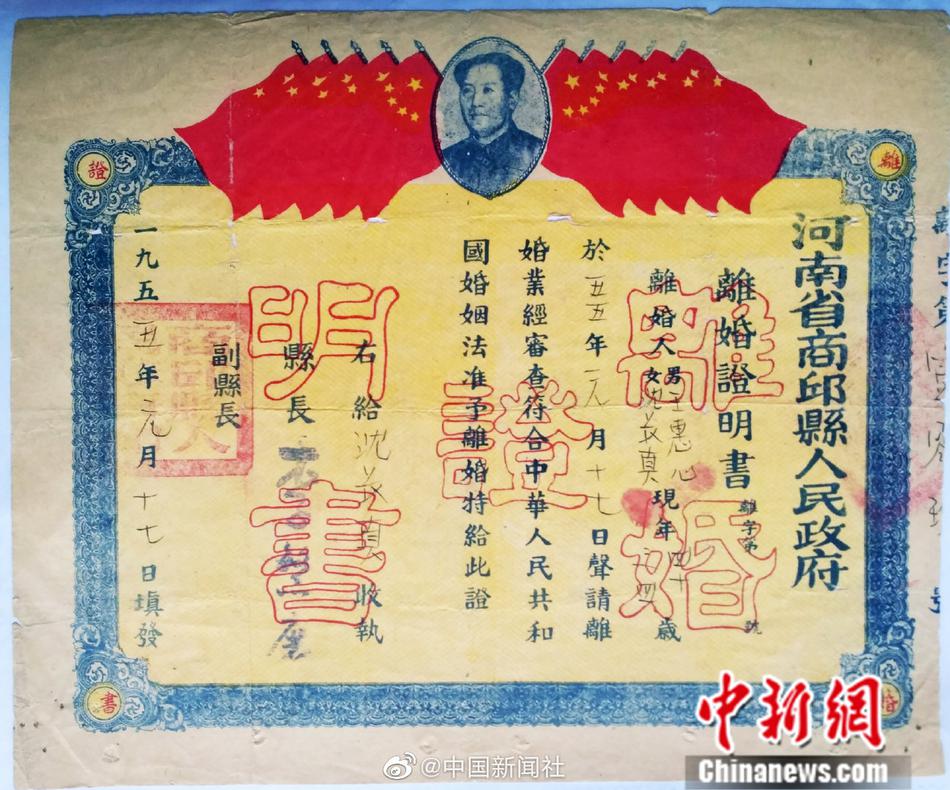 河南省商邱縣人民政府
離婚證明書
離字第 號
離婚人 男王惠心 現年 四十 歲
女沈 真
於一九五五年元月十七日聲請離
婚業經審查符合中華人民共和
國婚姻法准予離婚特給此證
右給沈 真收執
縣長
副縣長
一九五五年元月十七日填發
離婚
證
明書
離
證
婚
書
中新網
Chinanews.com
@中国新闻社